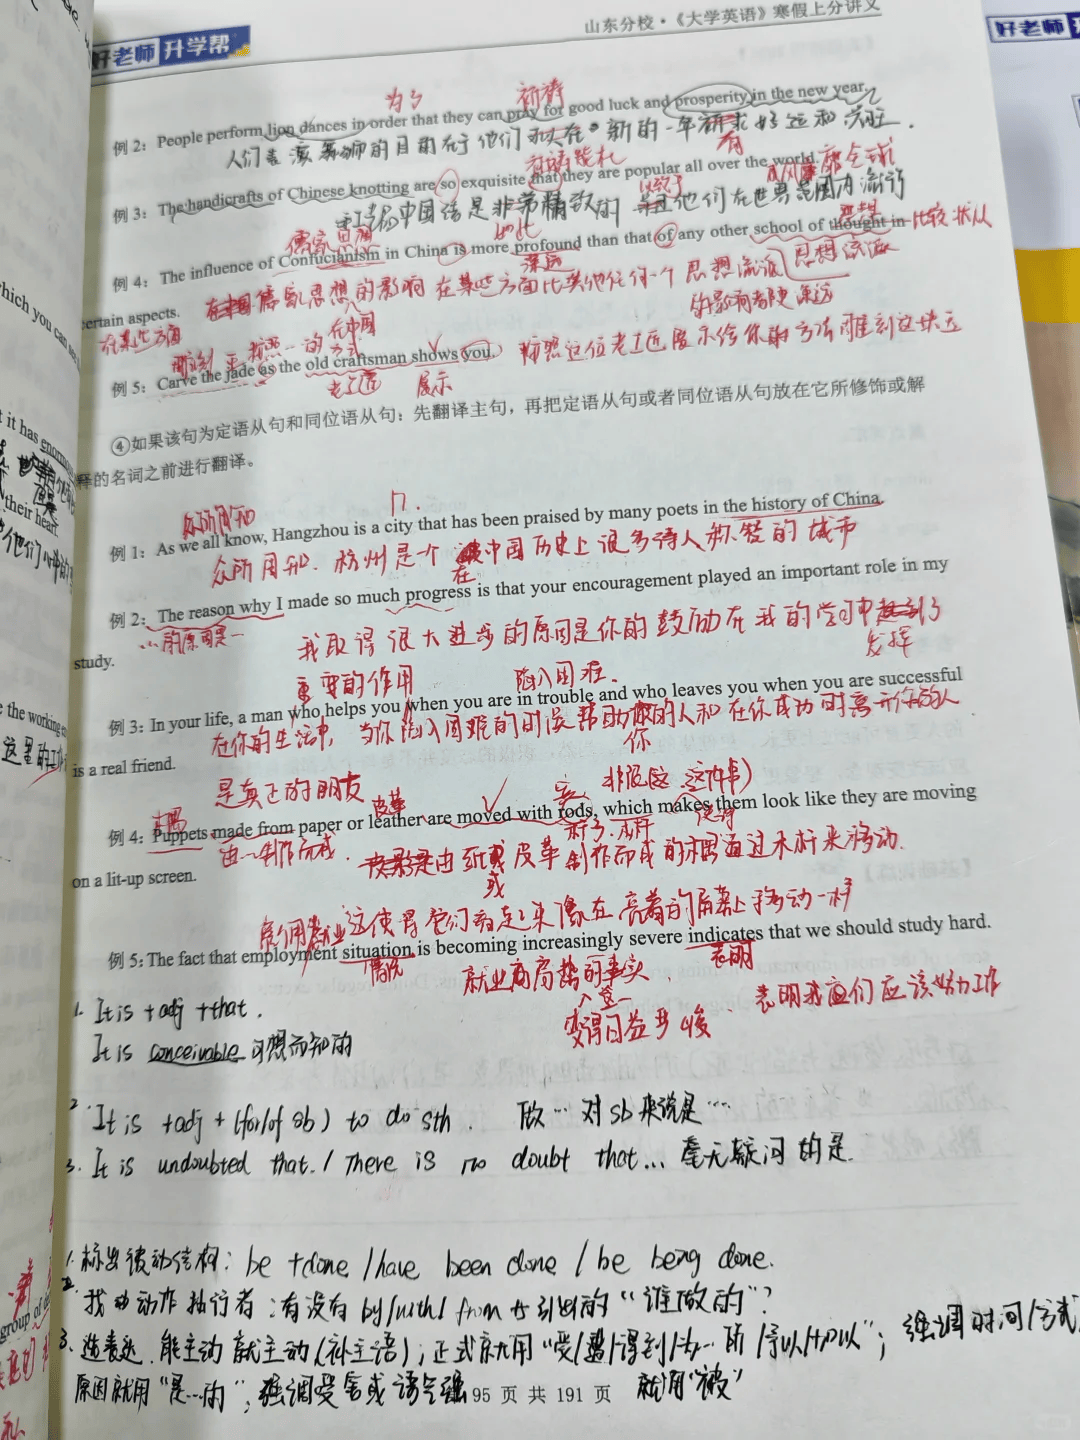 好老师 升学帮
山东分校·《大学英语》寒假上分讲义
好老师
为了 祈祷
例 2：People perform lion dances in order that they can pray for good luck and prosperity in the new year.
人们表演舞狮的目的在于他们 新的一年祈求好运和兴旺.
例 3：The handicrafts of Chinese knotting are so exquisite that they are popular all over the world.
中国结是非常精致的 他们在世界范围内流行
风靡全球
儒家思想
例 4：The influence of Confucianism in China is more profound than that of any other school of thought in
比较状从
深远 思想流派
certain aspects.
在中国儒家思想的影响在某些方面比其他任何一个思想流派
在某些方面
的影响都更深远
例 5：Carve the jade as the old craftsman shows you.
按照这位老工匠展示给你的方法雕刻这块玉
老工匠 展示
④如果该句为定语从句和同位语从句：先翻译主句，再把定语从句或者同位语从句放在它所修饰或解
释的名词之前进行翻译。
众所周知
例 1：As we all know, Hangzhou is a city that has been praised by many poets in the history of China.
众所周知. 杭州是一个在中国历史上很多诗人称赞的城市
例 2：The reason why I made so much progress is that your encouragement played an important role in my
…的原因是…
study.
我取得很大进步的原因是你的鼓励在我的学习中起到了
发挥
重要的作用
陷入困难.
例 3：In your life, a man who helps you when you are in trouble and who leaves you when you are successful
在你的生活中, 当你陷入困难的时候帮助你的人和在你成功时离开你的人
你
is a real friend.
是真正的朋友
木偶 皮革 非限定(这件事)
例 4：Puppets made from paper or leather are moved with rods, which makes them look like they are moving
由…制作而成. 由纸或皮革制作而成的木偶通过木杆来移动.
或
on a lit-up screen.
这使得它们看起来像在亮着的屏幕上移动一样
雇佣就业
例 5：The fact that employment situation is becoming increasingly severe indicates that we should study hard.
情况 表明
就业局势的事实
变得日益严峻
表明我们应该努力工作
1. It is + adj + that.
It is conceivable 可想而知的
2. It is + adj + (for/of sb) to do sth. 做…对sb来说是…
3. It is undoubted that. / There is no doubt that... 毫无疑问的是.
1. 标出被动结构: be + done / have been done / be being done.
2. 找出动作执行者: 有没有 by/with/from 等引出的"谁做的"?
3. 选表达. 能主动就主动(补主语); 正式就用"受/遭/得到/为…所/予以/加以"; 强调时间/方式/
原因就用"是…的"; 强调受害或语气强 就用"被"
95 页 共 191 页